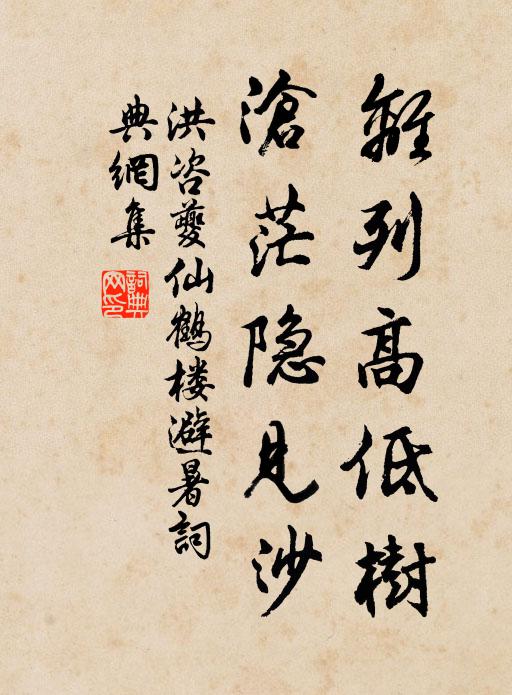 離列高低樹
滄茫隐見沙
洪咨夔仙鶴楼避暑詞
典網集
詞典网印